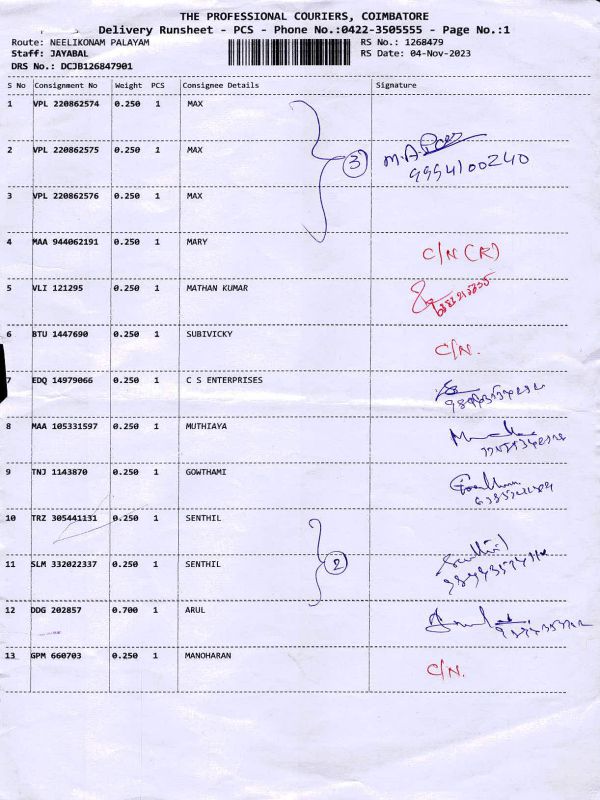 THE PROFESSIONAL COURIERS, COIMBATORE
Delivery Runsheet - PCS - Phone No.:0422-3505555 - Page No.:1
Route: NEELIKONAM PALAYAM RS No.: 1268479
Staff: JAYABAL RS Date: 04-Nov-2023
DRS No.: DCJB126847901
S No Consignment No Weight PCS Consignee Details Signature
1 VPL 220862574 0.250 1 MAX
2 VPL 220862575 0.250 1 MAX 3 M.A. 9994100240
3 VPL 220862576 0.250 1 MAX
4 MAA 944062191 0.250 1 MARY C/N (R)
5 VLI 121295 0.250 1 MATHAN KUMAR
6 BTU 1447690 0.250 1 SUBIVICKY C/N.
7 EDQ 14979066 0.250 1 C S ENTERPRISES
8 MAA 105331597 0.250 1 MUTHIAYA
9 TNJ 1143870 0.250 1 GOWTHAMI
10 TRZ 305441131 0.250 1 SENTHIL
11 SLM 332022337 0.250 1 SENTHIL 2
12 DDG 202857 0.700 1 ARUL
13 GPM 660703 0.250 1 MANOHARAN C/N.